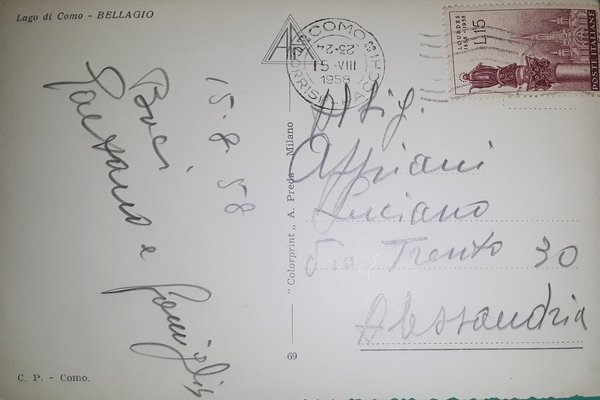 Lago di Como - BELLAGIO
15.8.58
Baci
Gaetano e
famiglia
C. P. - Como.
"Colorprint" A. Preda - Milano
69
COMO
23-24
15 VIII
1958
LOURDES
1858-1958
L.15
POSTE ITALIANE
Al Sig.
Affriani
Luciano
Via Trento 30
Alessandria